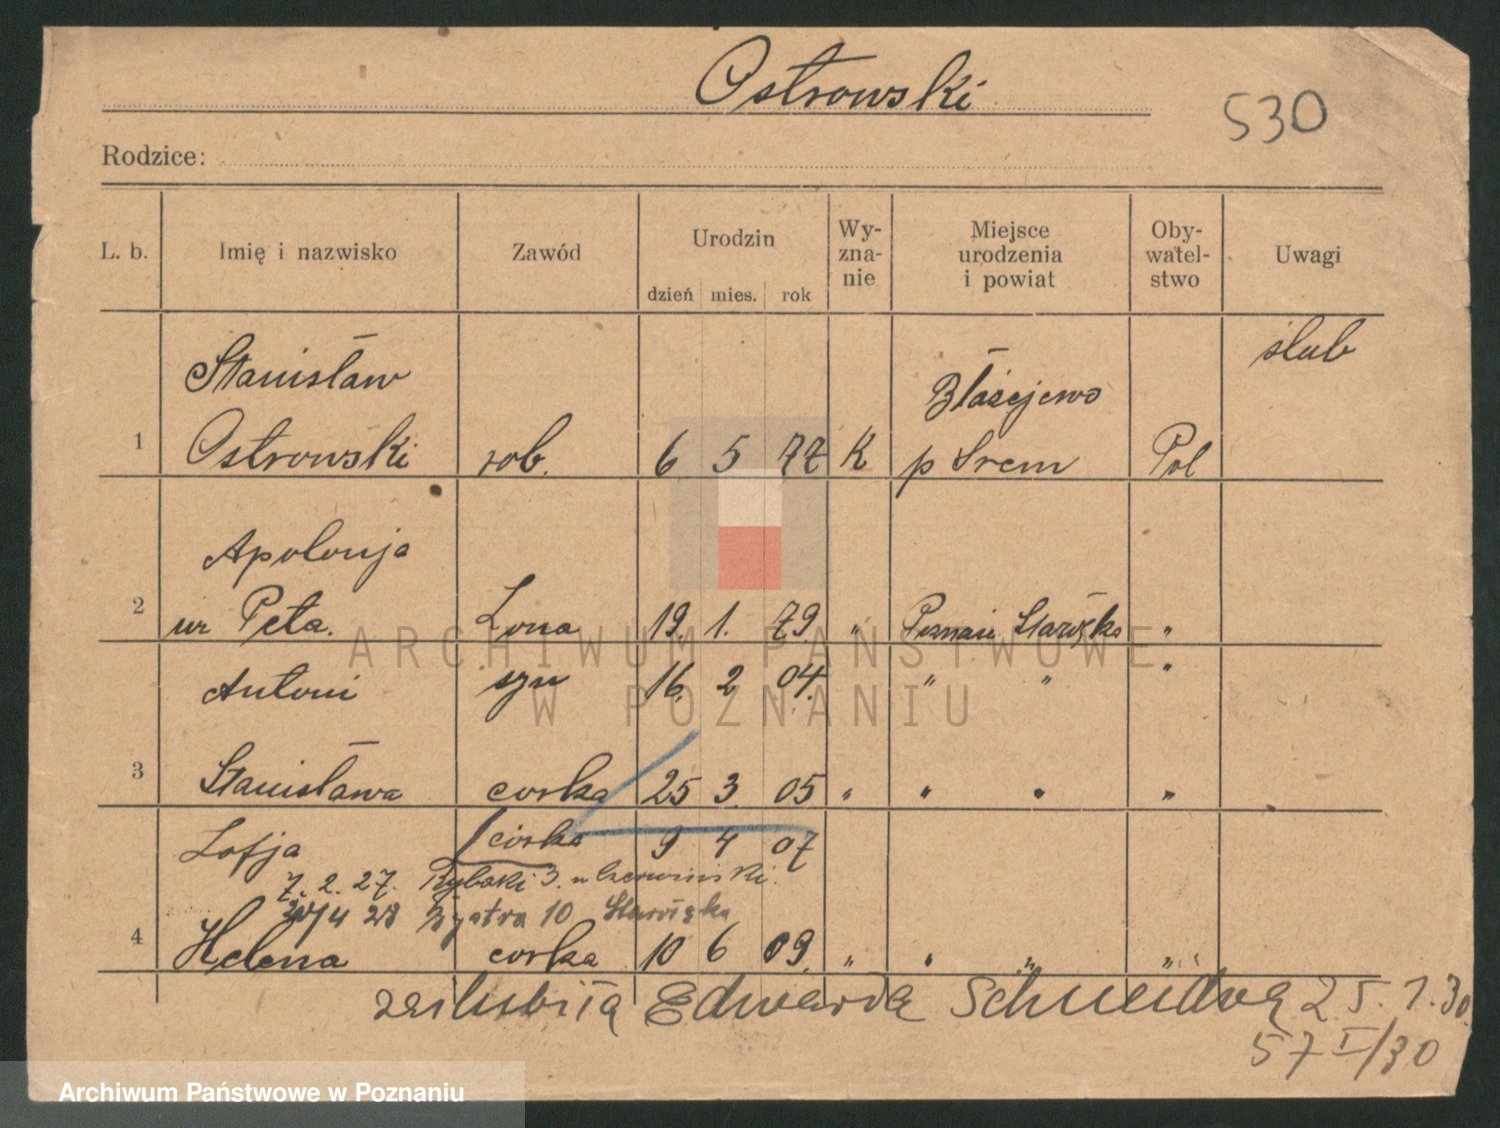 Ostrowski
530
Rodzice:
L. b. Imię i nazwisko Zawód Urodzin Wy-zna-nie Miejsce urodzenia i powiat Oby-watel-stwo Uwagi
dzień mies. rok
Stanisław Błażejewo ślub
1 Ostrowski rob. 6 5 77 K p Srem Pol
Apolonja
2 ur Peta. Żona 19. 1. 79. " Poznań Starołęka "
Antoni syn 16. 2 04. " " "
3 Stanisława corka 25 3. 05 " " " "
Zofja córka 9 4 07
7. 2. 27. Rybaki 3. u Czerwiński.
4 28 Bystra 10 Starołęka
4 Helena corka 10 6 09. " " " "
zaślubiła Edwarda Schneidra 25. 1. 30
57 I/30
ARCHIWUM PAŃSTWOWE
W POZNANIU
Archiwum Państwowe w Poznaniu